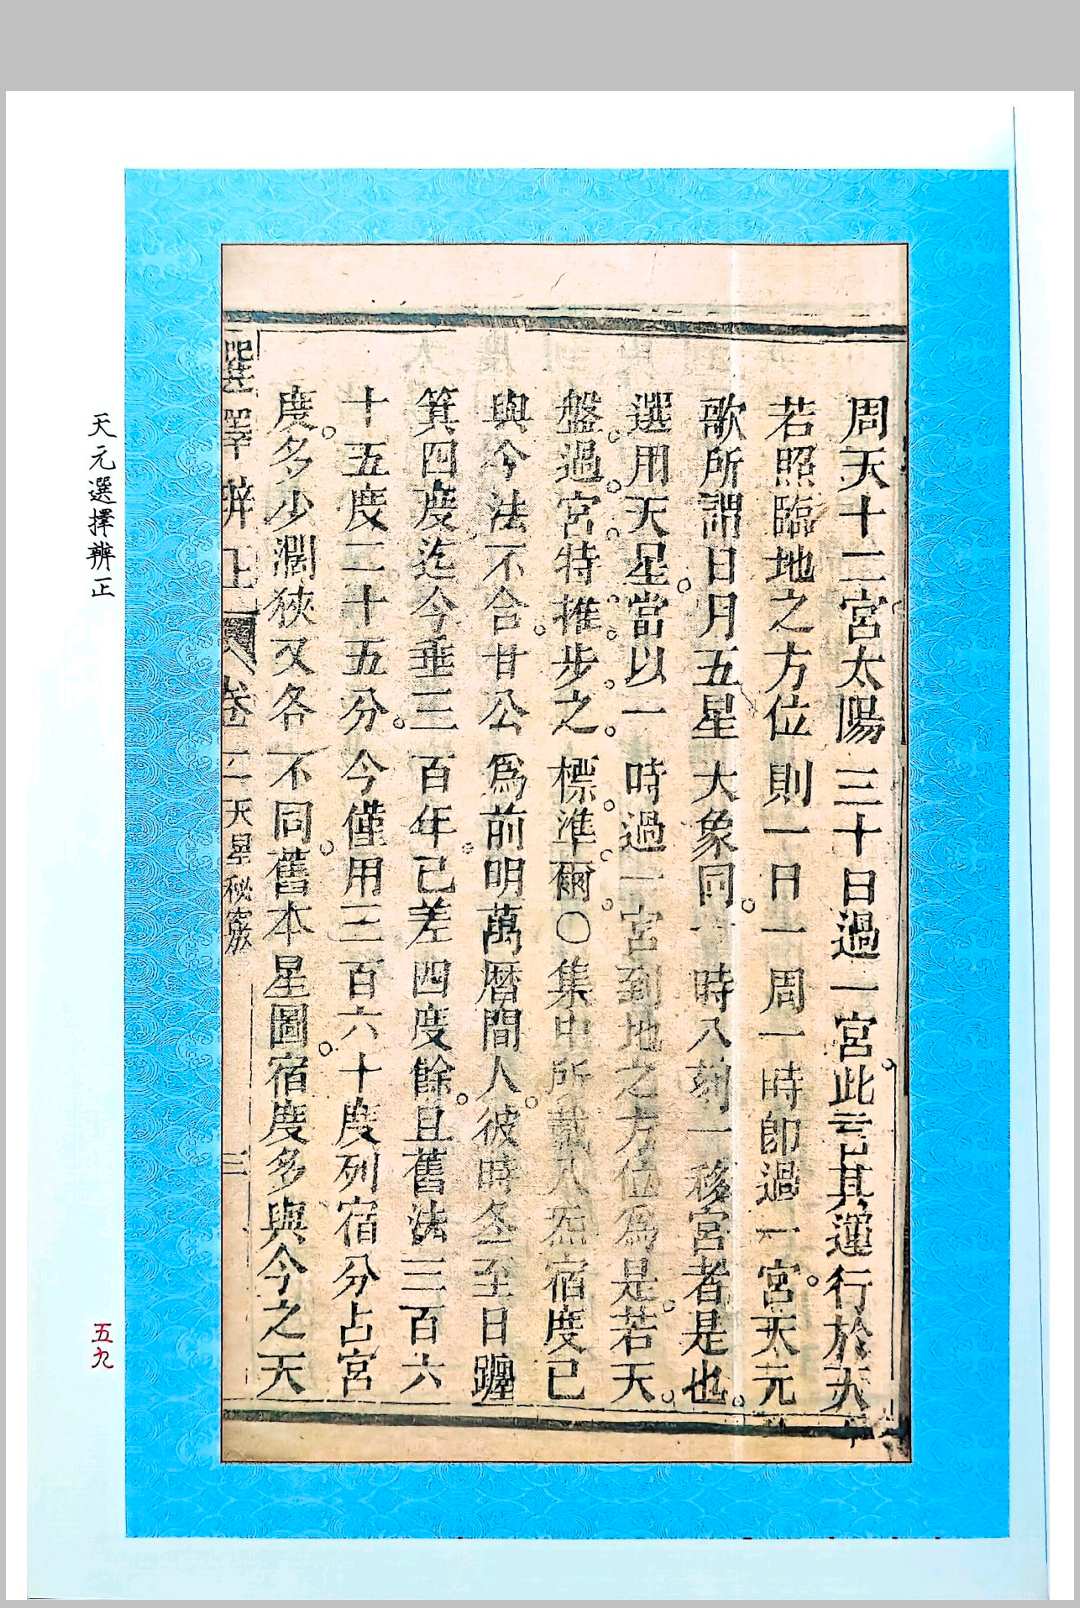 周天十二宮太陽三十日過一宮此言其運行於天
若照臨地之方位則一日一周一時卽過一宮天元
歌所謂日月五星大象同一時八刻一移宮者是也
選用天星當以一時過一宮到地之方位為是若天
盤過宮特推步之標準爾〇集中所載入炁宿度已
與今法不合甘公為前明萬曆間人彼時冬至日躔
箕四度迄今垂三百年已差四度餘且舊法三百六
十五度二十五分今僅用三百六十度列宿分占宮
度多少濶狹又各不同舊本星圖宿度多與今之天
選擇辨正 卷一 天星秘竅 三
天元選擇辨正
五九